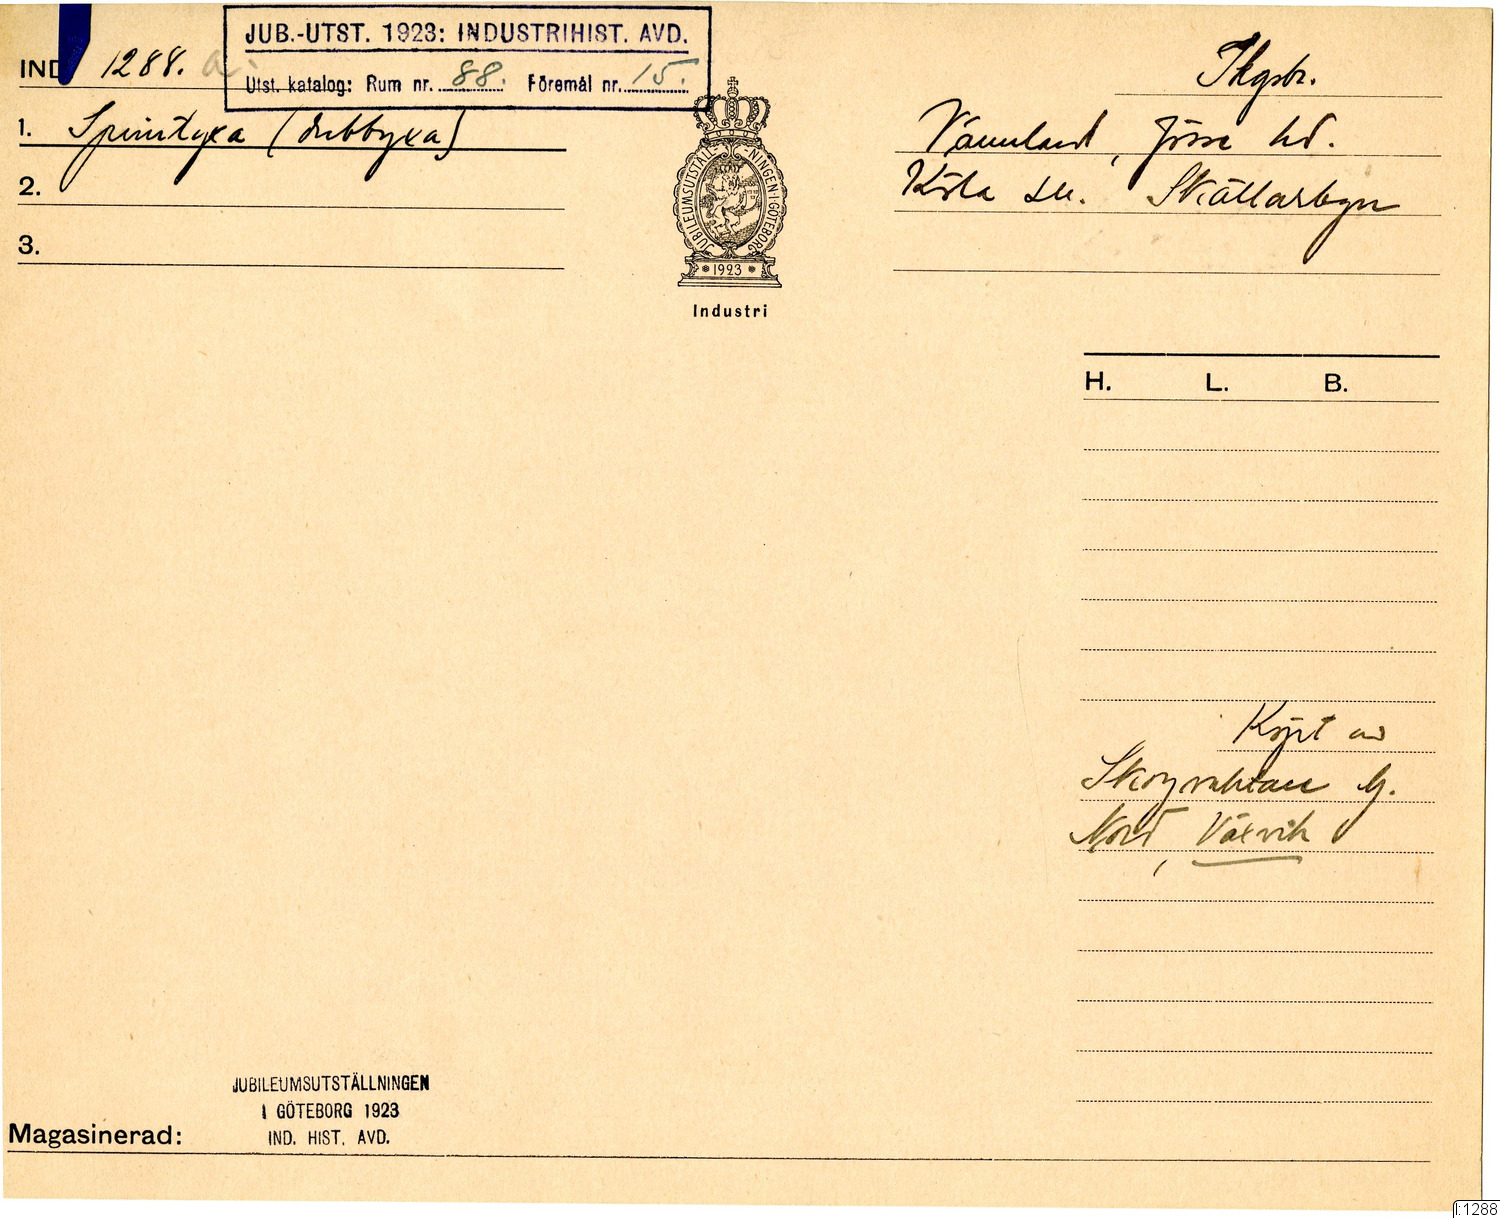 JUB.-UTST. 1923: INDUSTRIHIST. AVD.
Utst. katalog: Rum nr. 88. Föremål nr. 15.
IND 1288. a.
1. Spintyxa (dubbyxa)
2.
3.
JUBILEUMSUTSTÄLLNINGEN·I·GÖTEBORG
1923
Industri
Thgsbr.
Värmland, Jösse hd.
Köla sn. Skällarbyn
H. L. B.
Köpt av
Skogvaktare G.
Nord, Växvik
JUBILEUMSUTSTÄLLNINGEN
I GÖTEBORG 1923
IND. HIST. AVD.
Magasinerad:
I:1288